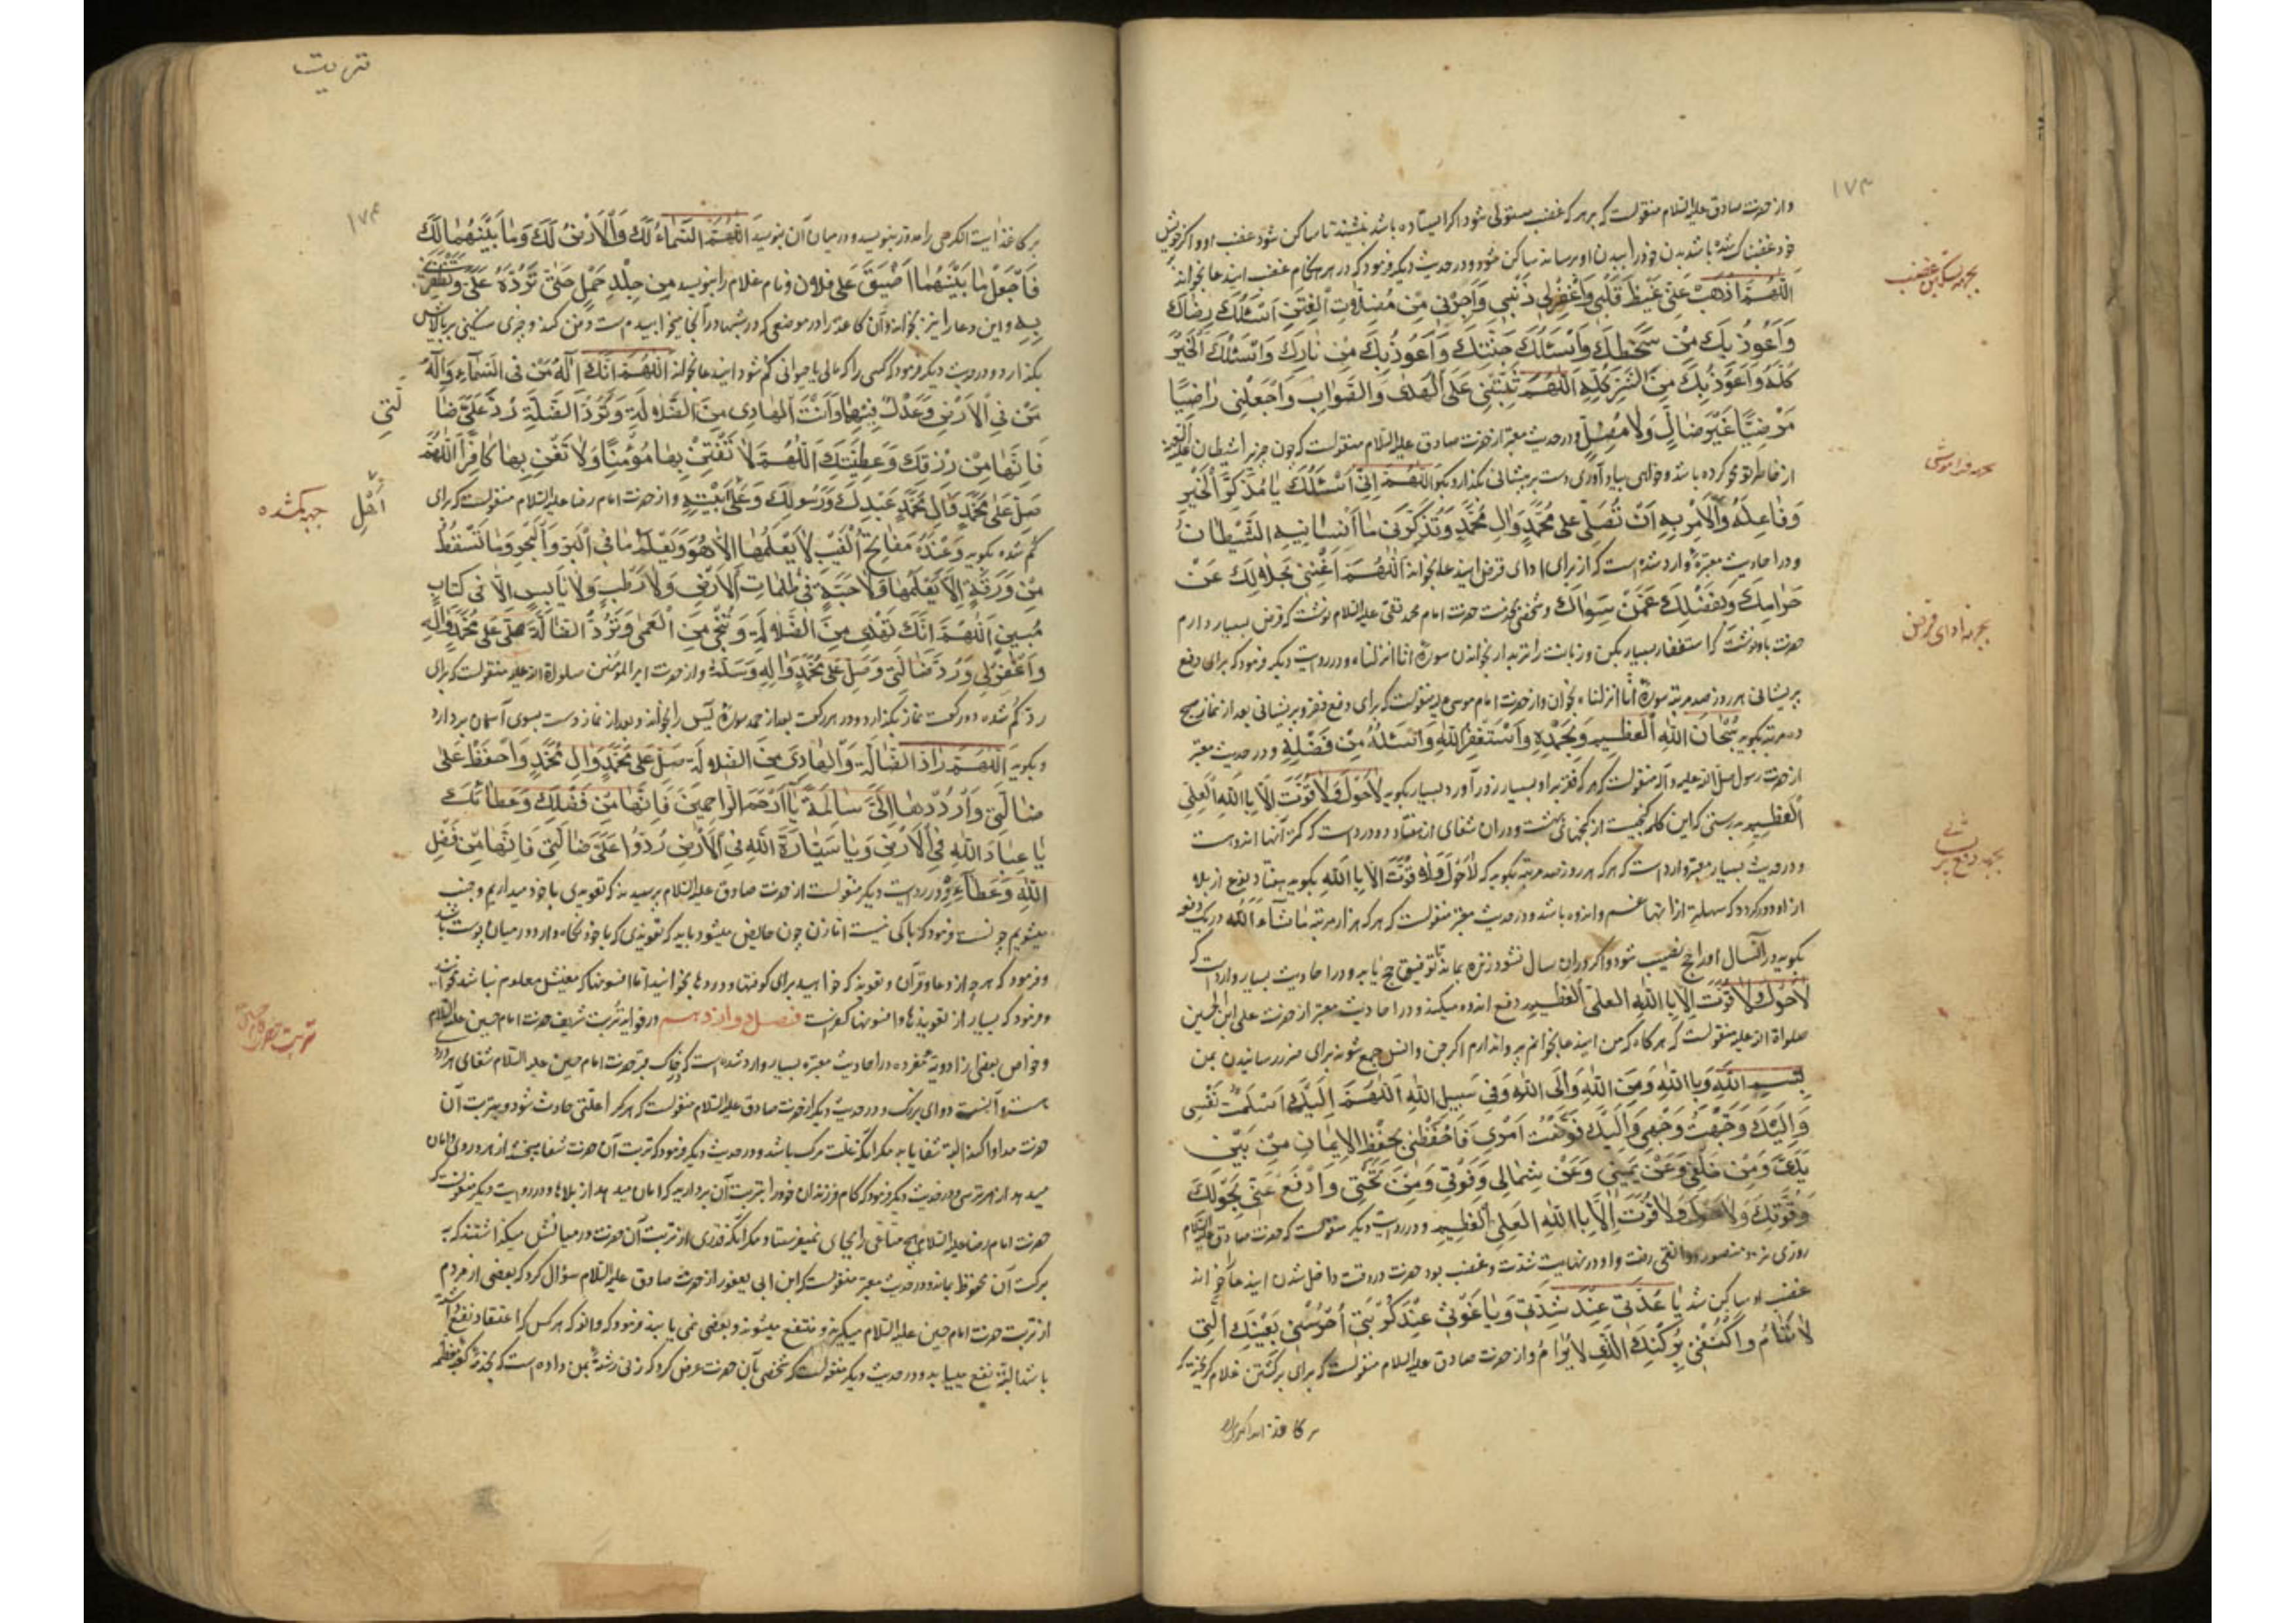 ۱۷۳
واز حضرت صادق علیه السلام منقولست که بر هر که غضب مستولی شود اگر ایستاده باشد بنشیند تا ساکن شود غضب او و اگر بر خویش
خود غضبناک شده باشد بدن خود را ببدن او برساند ساکن شود و در حدیث دیگر فرمود که در هنکام غضب ایندعا بخواند
اللهم اذهب عنی غیظ قلبی واغفرلی ذنبی واجرنی من مضلات الفتن اسئلک رضاک
واعوذ بک من سخطک واسئلک جنتک واعوذ بک من نارک واسئلک الخیر
کله واعوذ بک من الشر کله اللهم ثبتنی علی الهدی والصواب واجعلنی راضیا
مرضیا غیر ضال ولا مضل ودر حدیث معتبر از حضرت صادق علیه السلام منقولست که چون چیزیرا شیطان
از خاطر تو محو کرده باشد و خواهی بیاد آوری دست بر پیشانی بگذار و بگو اللهم انی اسئلک یا مذکر الخیر
وفاعله والامر به ان تصلی علی محمد وال محمد وتذکرنی ما انسانیه الشیطان
ودر احادیث معتبره وارد شده است که از برای ادای قرض ایندعا بخواند اللهم اغننی بحلالک عن
حرامک وبفضلک عمن سواک وشخصی بخدمت حضرت امام محمد تقی علیه السلام نوشت که قرض بسیار دارم
حضرت باو نوشت که استغفار بسیار بکن و زبانت را تر بدار بخواندن سوره انا انزلناه ودر روایت دیگر فرمود که برای دفع
پریشانی هر روز صد مرتبه سوره انا انزلناه بخوان واز حضرت امام موسی منقولست که برای دفع فقر و پریشانی بعد از نماز صبح
ده مرتبه بگوید سبحان الله العظیم وبحمده واستغفر الله واسئله من فضله ودر حدیث معتبر
از حضرت رسول صلی الله علیه وآله منقولست که هر که فقر باو بسیار زور آورد بسیار بگوید لا حول ولا قوت الا باالله العلی
العظیم بدرستی که این کلمه گنجیست از گنجهای بهشت ودر آن شفای از هفتاد و دو درد است که کمتر آنها اندوه است
ودر حدیث بسیار معتبر وارد است که هر که هر روز صد مرتبه بگوید که لا حول ولا قوت الا باالله بگوید هفتاد نوع از بلا
از او دور گردد که سهلتر از انها غم و اندوه باشد ودر حدیث معتبر منقولست که هر که هزار مرتبه ما شاء الله در یک دفعه
بگوید در آنسال او را حج نصیب شود واگر در آن سال نشود زنده بماند تا توفیق حج یابد ودر احادیث بسیار وارد است که
لا حول ولا قوت الا باالله العلی العظیم دفع اندوه میکند ودر احادیث معتبر از حضرت علی ابن الحسین
صلواة الله علیه منقولست که هر گاه که من ایندعا بخوانم پروا ندارم اگر جن وانس جمع شوند برای ضرر رسانیدن بمن
بسم الله وباالله ومن الله والی الله وفی سبیل الله اللهم الیک اسلمت نفسی
والیک وجهت وجهی والیک فوضت امری فاحفظنی بحفظ الایمان من بین
یدی ومن خلفی وعن یمینی وعن شمالی وفوقی ومن تحتی وادفع عنی بحولک
وقوتک ولا حول ولا قوت الا باالله العلی العظیم ودر روایت دیگر منقولست که حضرت صادق علیه السلام
روزی نزد منصور دوانقی رفت واو در نهایت شدت وغضب بود حضرت در وقت داخل شدن ایندعا خواند
غضب او ساکن شد یا عدتی عند شدتی ویا غوثی عند کربتی احرسنی بعینک التی
لا تنام واکنفنی برکنک الذی لا یرام واز حضرت صادق علیه السلام منقولست که برای برگشتن غلام گریخته که
بجهة تسکین غضب
بجهة فراموشی
بجهة ادای قرض
بجهة دفع پریشانی
تربت
۱۷۴
بر کاغذ ایت الکرسی را مدور بنویسد و در میان آن بنویسد اللهم السماء لک والارض لک وما بینهما لک
فاجعل ما بینهما اضیق علی فلان ونام غلام را بنویسد من جلد حمل حتی ترده علی وتظفرنی
به واین دعا را نیز بخواند وآن کاغذ را در موضعی که در شبها در آنجا میخوابیده است دفن کند و چیزی سنگینی بر بالاش
بگذارد ودر حدیث دیگر فرمود که کسی را که مالی یا حیوانی گم شود ایندعا بخواند اللهم انک اله من فی السماء واله
من فی الارض وعدل فیهما وانت الهادی من الضلالة وترد الضالة رد علی ضا
لتی
فانها من رزقک وعطیتک اللهم لا تفتن بها مؤمنا ولا تغن بها کافرا اللهم
صل علی محمد وال محمد عبدک ورسولک وعلی اهل بیته واز حضرت امام رضا علیه السلام منقولست که برای
گم شده بگوید وعنده مفاتح الغیب لا یعلمها الا هو ویعلم ما فی البر والبحر وما تسقط
من ورقة الا یعلمها ولا حبة فی ظلمات الارض ولا رطب ولا یابس الا فی کتاب
مبین اللهم انک تهدی من الضلالة وتنجی من العمی وترد الضالة صل علی محمد واله
واغفرلی ورد ضالتی وصل علی محمد واله وسلم واز حضرت امیر المؤمنین صلواة الله علیه منقولست که برای
رد گم شده دو رکعت نماز بگذارد و در هر رکعت بعد از حمد سوره یس را بخواند وبعد از نماز دست بسوی آسمان بردارد
وبگوید اللهم راد الضالة والهادی من الضلالة صل علی محمد وال محمد واحفظ علی
ضالتی وارددها الی سالمة یا ارحم الراحمین فانها من فضلک وعطائک
یا عباد الله فی الارض ویا سیارة الله فی الارض ردوا علی ضالتی فانها من فضل
الله وعطاءه ودر روایت دیگر منقولست از حضرت صادق علیه السلام پرسیدند که تعویذی با خود میداریم وجنب
میشویم چونست فرمود که باکی نیست اما زن چون حایض میشود باید که تعویذی که با خود نگاه دارد در میان پوست باشد
وفرمود که هر چه از دعا وقرآن وتعویذ که خواهید برای کوفتها ودردها بخوانید اما افسونها که معنیش معلوم نباشد نخوانند
وفرمود که بسیار از تعویذها وافسونها کفر است فصل دوازدهم در فواید تربت شریف حضرت امام حسین علیه السلام
وخواص بعضی از ادویه مفرده در احادیث معتبره بسیار وارد شده است که خاک قبر حضرت امام حسین علیه السلام شفای هر درد
هست و آنست دوای بزرگ ودر حدیث دیگر از حضرت صادق علیه السلام منقولست که هر کرا علتی حادث شود وبتربت آن
حضرت مداوا کند البته شفا یابد مگر آنکه علت مرگ باشد ودر حدیث دیگر فرمود که تربت آن حضرت شفا میبخشد از هر دردی وامان
میدهد از هر ترسی ودر حدیث دیگر فرمود که کام فرزندان خود را بتربت آن بردارید که امان میدهد از بلاها ودر روایت دیگر منقولست که
حضرت امام رضا علیه السلام هیچ متاعی را بجای نمیفرستاد مگر آنکه قدری از تربت آن حضرت در میانش میگذاشتند که به
برکت آن محفوظ بماند ودر حدیث معتبر منقولست که ابن ابی یعفور از حضرت صادق علیه السلام سؤال کرد که بعضی از مردم
از تربت حضرت امام حسین علیه السلام میگیرند و منتفع میشوند وبعضی نمی یابند فرمود که والله که هر کس که اعتقاد نفع آن داشته
باشد البته نفع مییابد ودر حدیث دیگر منقولست که شخصی بآن حضرت عرض کرد که زنی رشته بمن داده است که
جهة گمشده